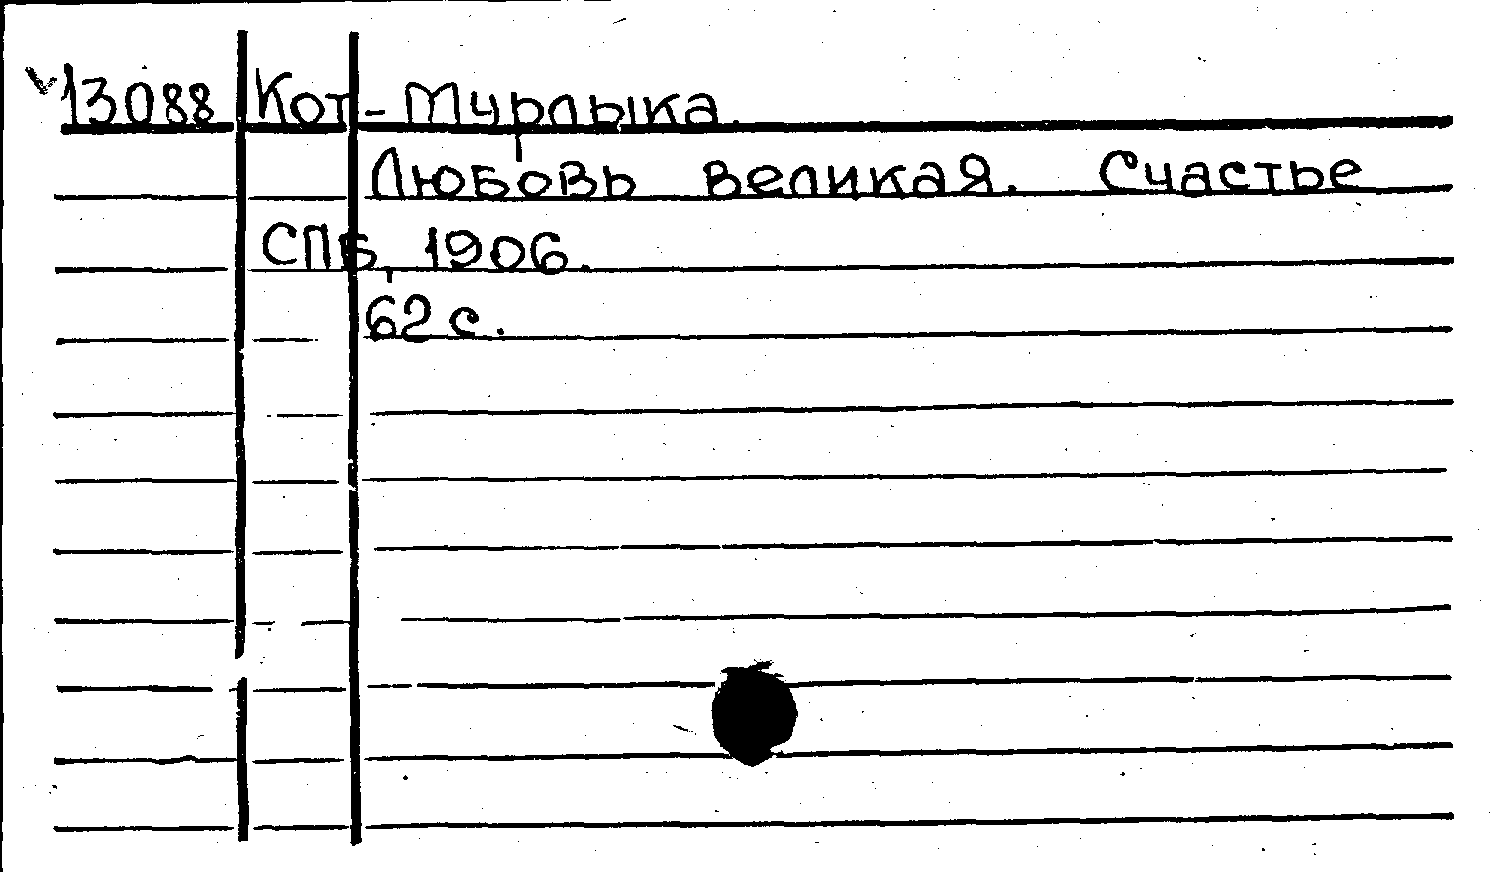 13088 Кот-Мурлыка.
Любовь великая. Счастье
СПБ, 1906.
62 с.